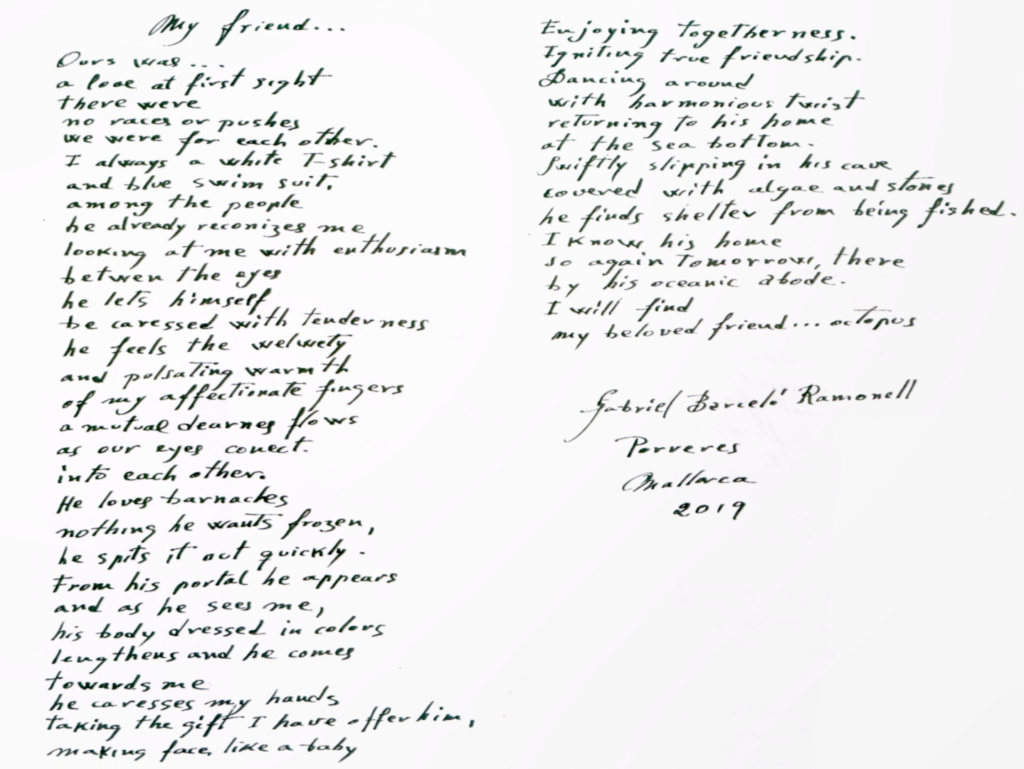 My friend...
Ours was...
a love at first sight
there were
no races or pushes
we were for each other.
I always a white T-shirt
and blue swim suit,
among the people
he already reconizes me
looking at me with enthusiasm
betwen the eyes
he lets himself
be caressed with tenderness
he feels the welwety
and pulsating warmth
of my affectionate fingers
a mutual dearnes flows
as our eyes conect.
into each other.
He loves barnacles
nothing he wants frozen,
he spits it out quickly.
From his portal he appears
and as he sees me,
his body dressed in colors
lengthens and he comes
towards me
he caresses my hands
taking the gift I have offer him,
making face, like a baby
Enjoying togetherness.
Igniting true friendship.
Dancing around
with harmonious twist
returning to his home
at the sea bottom.
Swiftly slipping in his cave
covered with algae and stones
he finds shelter from being fished.
I know his home
so again tomorrow, there
by his oceanic abode.
I will find
my beloved friend... octopus
Gabriel Barceló Ramonell
Porreres
Mallorca
2019